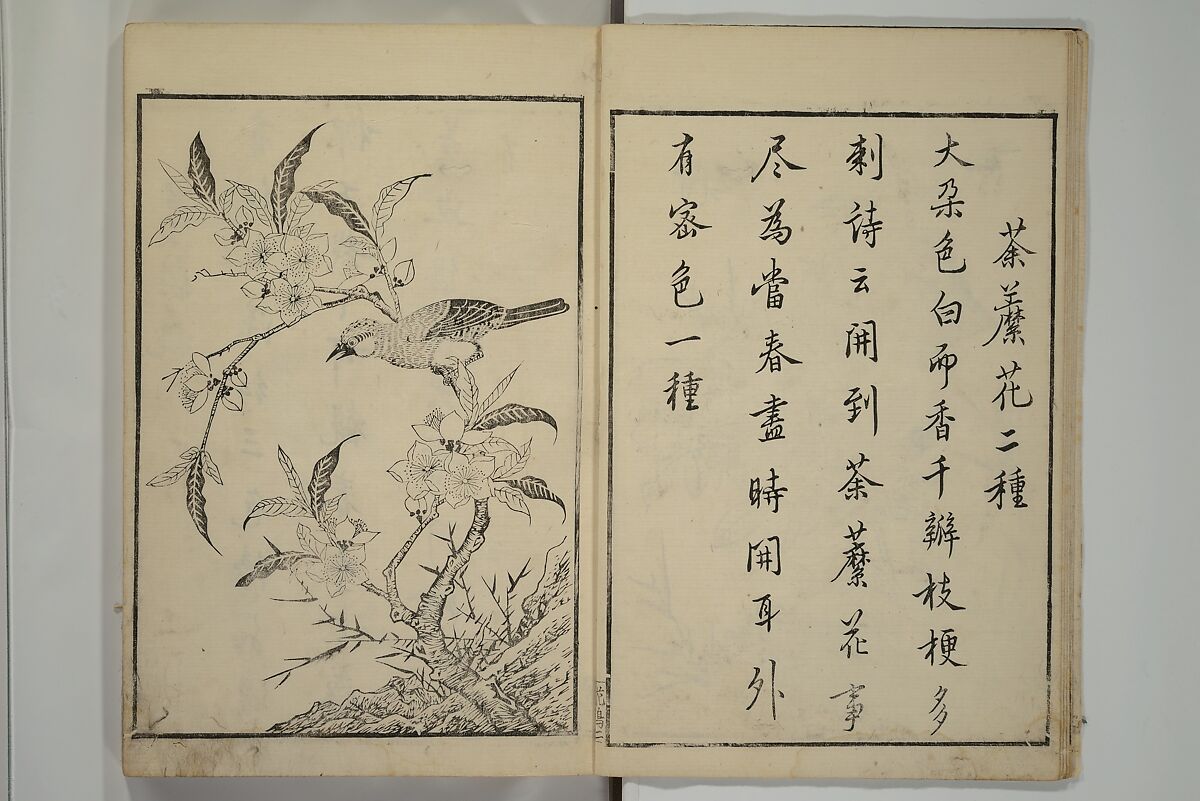 荼蘼花二種
大朶色白而香千瓣枝梗多
刺詩云開到荼蘼花事
尽為當春盡時開耳外
有宻色一種